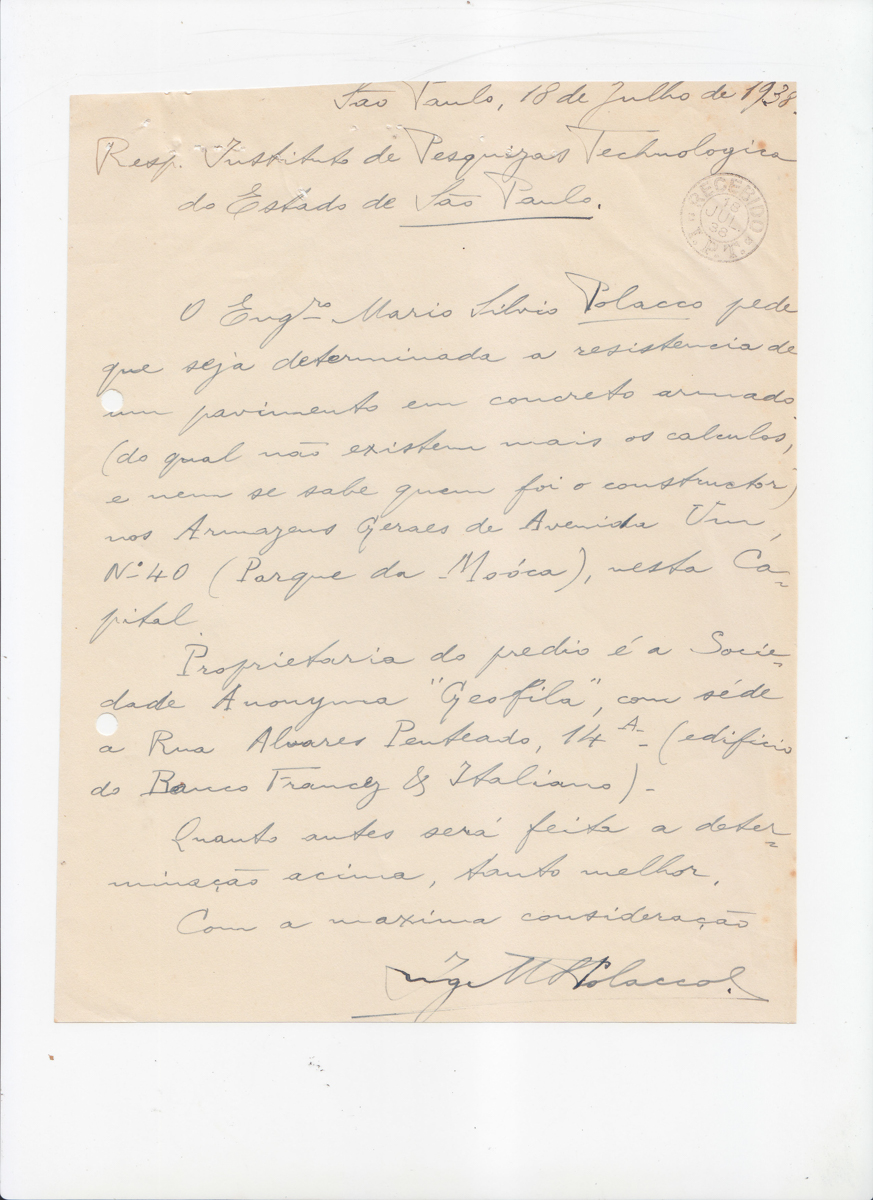 São Paulo, 18 de Julho de 1938.
Resp. Instituto de Pesquizas Technologica
do Estado de São Paulo.
RECEBIDO
18
JUL
38
I. P. T.
O Engro Mario Silvio Polacco pede
que seja determinada a resistencia de
um pavimento em concreto armado
(do qual não existem mais os calculos,
e nem se sabe quem foi o constructor)
nos Armazens Geraes de Avenida Um,
No 40 (Parque da Moóca), nesta Ca-
pital.
Proprietaria do predio é a Socie-
dade Anonyma "Geofila", com séde
a Rua Alvares Penteado, 14 A- (edificio
do Banco Francez & Italiano) -
Quanto antes será feita a deter-
minação acima, tanto melhor.
Com a maxima consideração
Ing. M S Polacco.